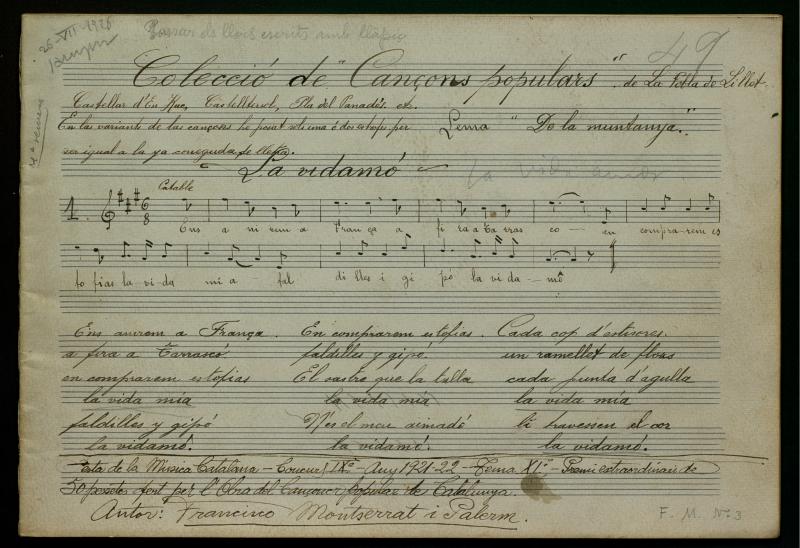 26-VII-1926
Passar els llocs escrits amb llapis
49
Colecció de "Cançons populars" de La Pobla de Lillet
Castellar d'En Huc, Castelltersol, Pla del Panadés etc.
En las variants de las cançons he posat sols una ó dos estrofes per
ser igual a la ya coneguda de lletra.
Lema "De la muntanya".
La vidamó
La vida amor
Catable
1. 6 8
Ens a ni rem a Fran ça a fi ra a Ta rras co — en compra-rem es
to fias la vi-da mi a — fal di lles i gi pó la vi da — mó
Ens anirem a França.
a fira a Tarrascó.
en comprarem estofias
la vida mia
faldilles y gipó
la vidamó.
En comprarem estofias.
faldilles y gipó.
El sastre que la talla
la vida mia
N'es el meu aimadó
la vidamó.
Cada cop d'estisores.
un ramellet de flors
cada punta d'agulla
la vida mia
li travessen el cor
la vidamó.
Festa de la Música Catalana - Concurs IXè - Any 1921-22 - Tema XIè - Premi extraordinari de
50 pesetes ofert per l'Obra del Cançoner popular de Catalunya.
Autor: Francisco Montserrat i Palerm.
F. M. Nº 3